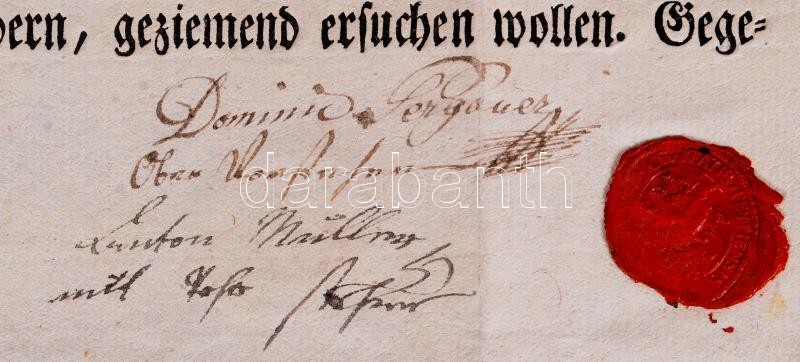 dern, geziemend ersuchen wollen. Gege=
Dominic Pergauer
Ober Vorsteher
darabanth
Anton Müller
mit